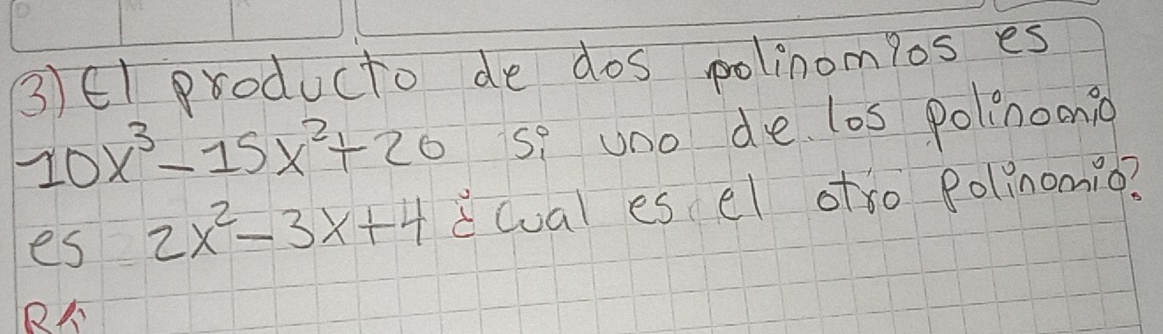 3) El producto de dos polinomios es
10x³-15x²+20 si uno de los polinomio
es 2x²-3x+4 ¿cual es el otro polinomio?
R/: